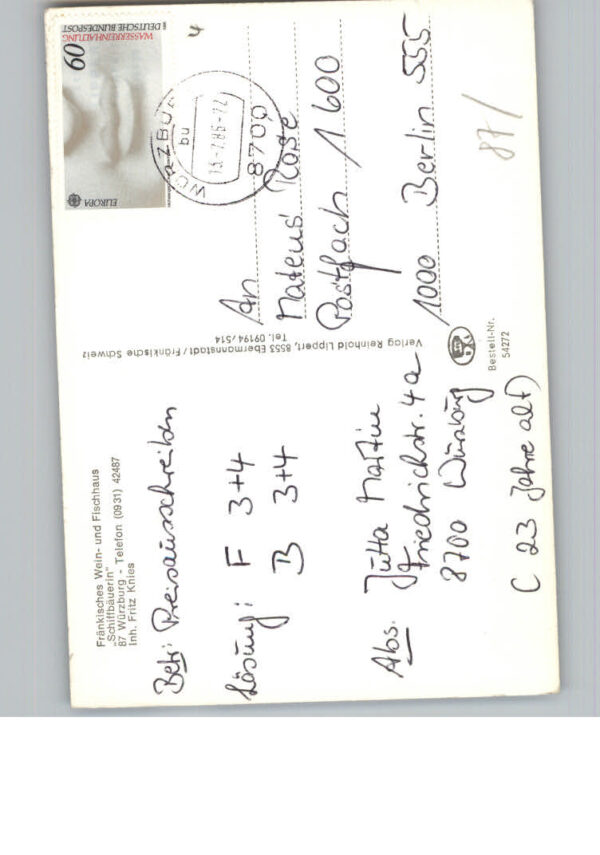 Fränkisches Wein- und Fischhaus
„Schiffbäuerin"
87 Würzburg - Telefon (0931) 42487
Inh. Fritz Knies
Betr: Preisausschreiben
Lösung: F 3+4
B 3+4
Abs. Jutta Martin
Friedrichstr. 4a
8700 Würzburg
( 23 Jahre alt)
Verlag Reinhold Lippert, 8553 Ebermannstadt / Fränkische Schweiz
Tel. 09194/514
Bestell-Nr.
54272
60
DEUTSCHE BUNDESPOST
WASSERREINHALTUNG
EUROPA
WÜRZBURG
bu
8700
An
Mateus Rosé
Postfach 1 600
1000 Berlin 555
87/